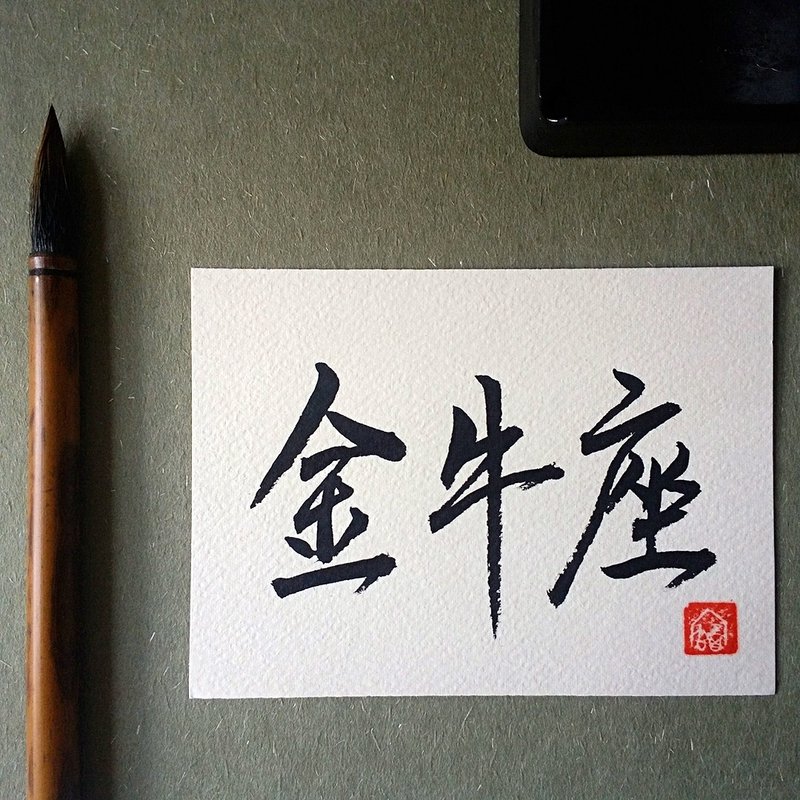 金牛座